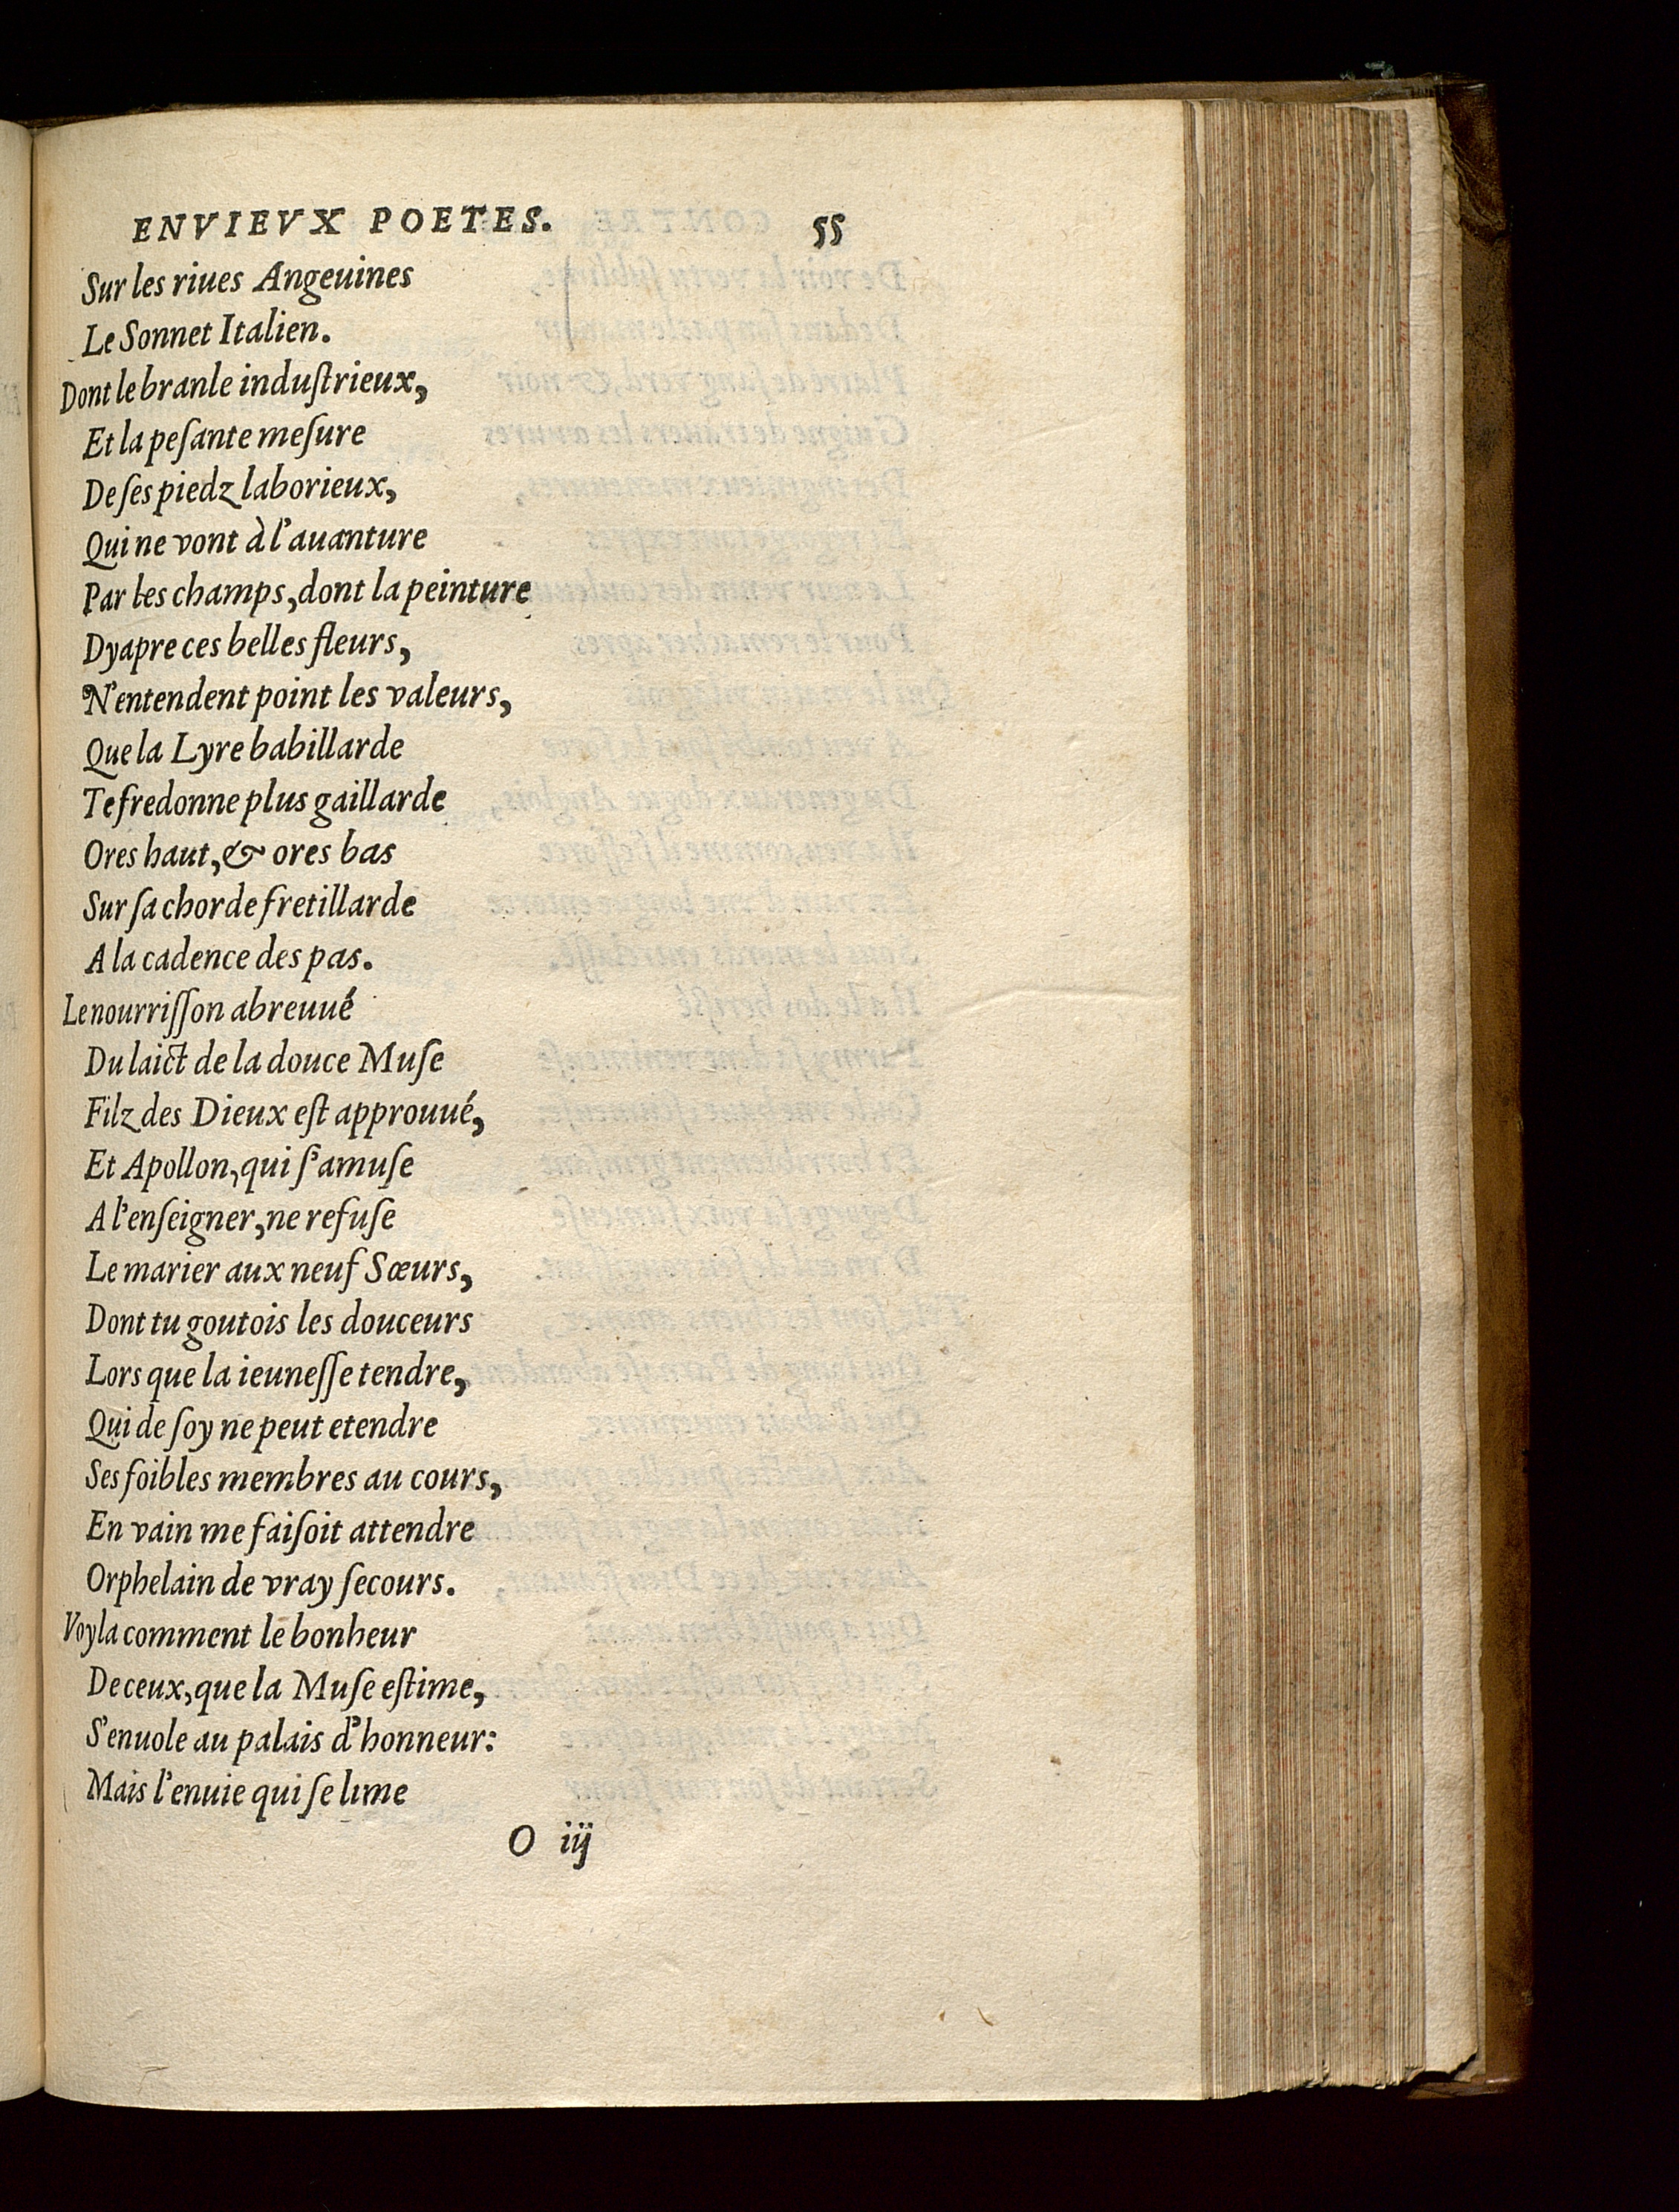 ENVIEVX POETES. 55
Sur les riues Angeuines
Le Sonnet Italien.
Dont le branle induſtrieux,
Et la peſante meſure
De ſes piedz laborieux,
Qui ne vont à l'auanture
Par les champs, dont la peinture
Dyapre ces belles fleurs,
N'entendent point les valeurs,
Que la Lyre babillarde
Te fredonne plus gaillarde
Ores haut, & ores bas
Sur ſa chorde fretillarde
A la cadence des pas.
Le nourriſſon abreuué
Du laict de la douce Muſe
Filz des Dieux eſt approuué,
Et Apollon, qui ſ'amuſe
A l'enſeigner, ne refuſe
Le marier aux neuf Sœurs,
Dont tu goutois les douceurs
Lors que la ieuneſſe tendre,
Qui de ſoy ne peut etendre
Ses foibles membres au cours,
En vain me faiſoit attendre
Orphelain de vray ſecours.
Voyla comment le bonheur
De ceux, que la Muſe eſtime,
S'enuole au palais d'honneur:
Mais l'enuie qui ſe lime
O iij